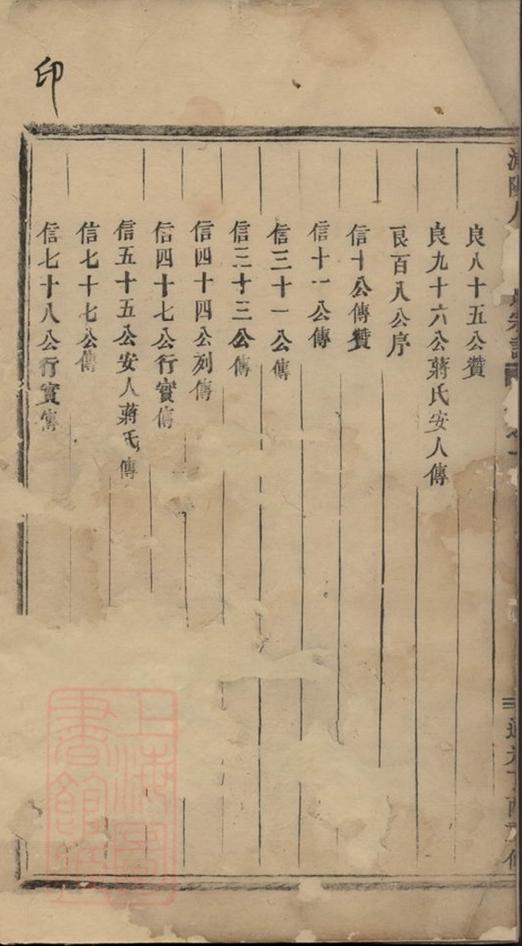 良八十五公贊
良九十六公蔣氏安人傳
良百八公序
信十公傳贊
信十一公傳
信三十一公傳
信三十三公傳
信四十四公列傳
信四十七公行實傳
信五十五公安人蔣氏傳
信七十七公傳
信七十八公行實傳
印
上海圖書館藏